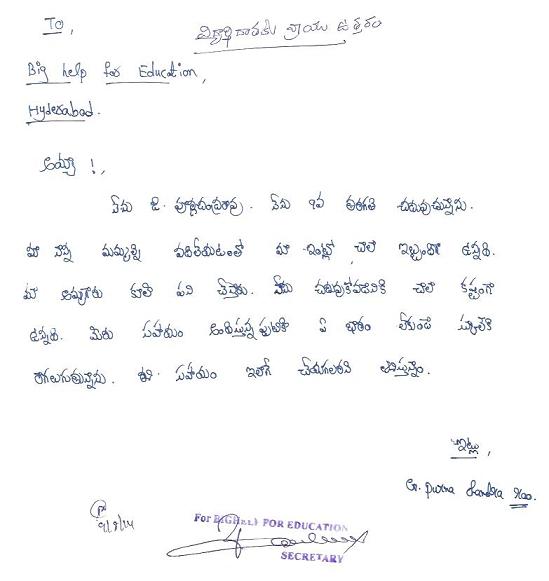 To,
విద్యార్థి దాతకు వ్రాయు ఉత్తరం
Big help for Education,
Hyderabad.
అయ్యా !,
నేను జి. పూర్ణచంద్రరావు. నేను 9వ తరగతి చదువుచున్నాను.
మా నాన్న మమ్మల్ని వదిలేయటంతో మా ఇంట్లో చాలా ఇబ్బందిగా ఉన్నది.
మా అమ్మగారు కూలి పని చేస్తారు. నేను చదువుకోవడానికి చాలా కష్టంగా
ఉన్నది. మీరు సహాయం అందిస్తున్నప్పటికి ఏ భారం లేకుండా స్కూలుకి
రాగలుగుతున్నాను. ఈ సహాయం ఇలాగే చేయగలరని ఆశిస్తున్నాం.
ఇట్లు,
G. purna chandra Rao.
9/8/14
For BIG HELP FOR EDUCATION
SECRETARY